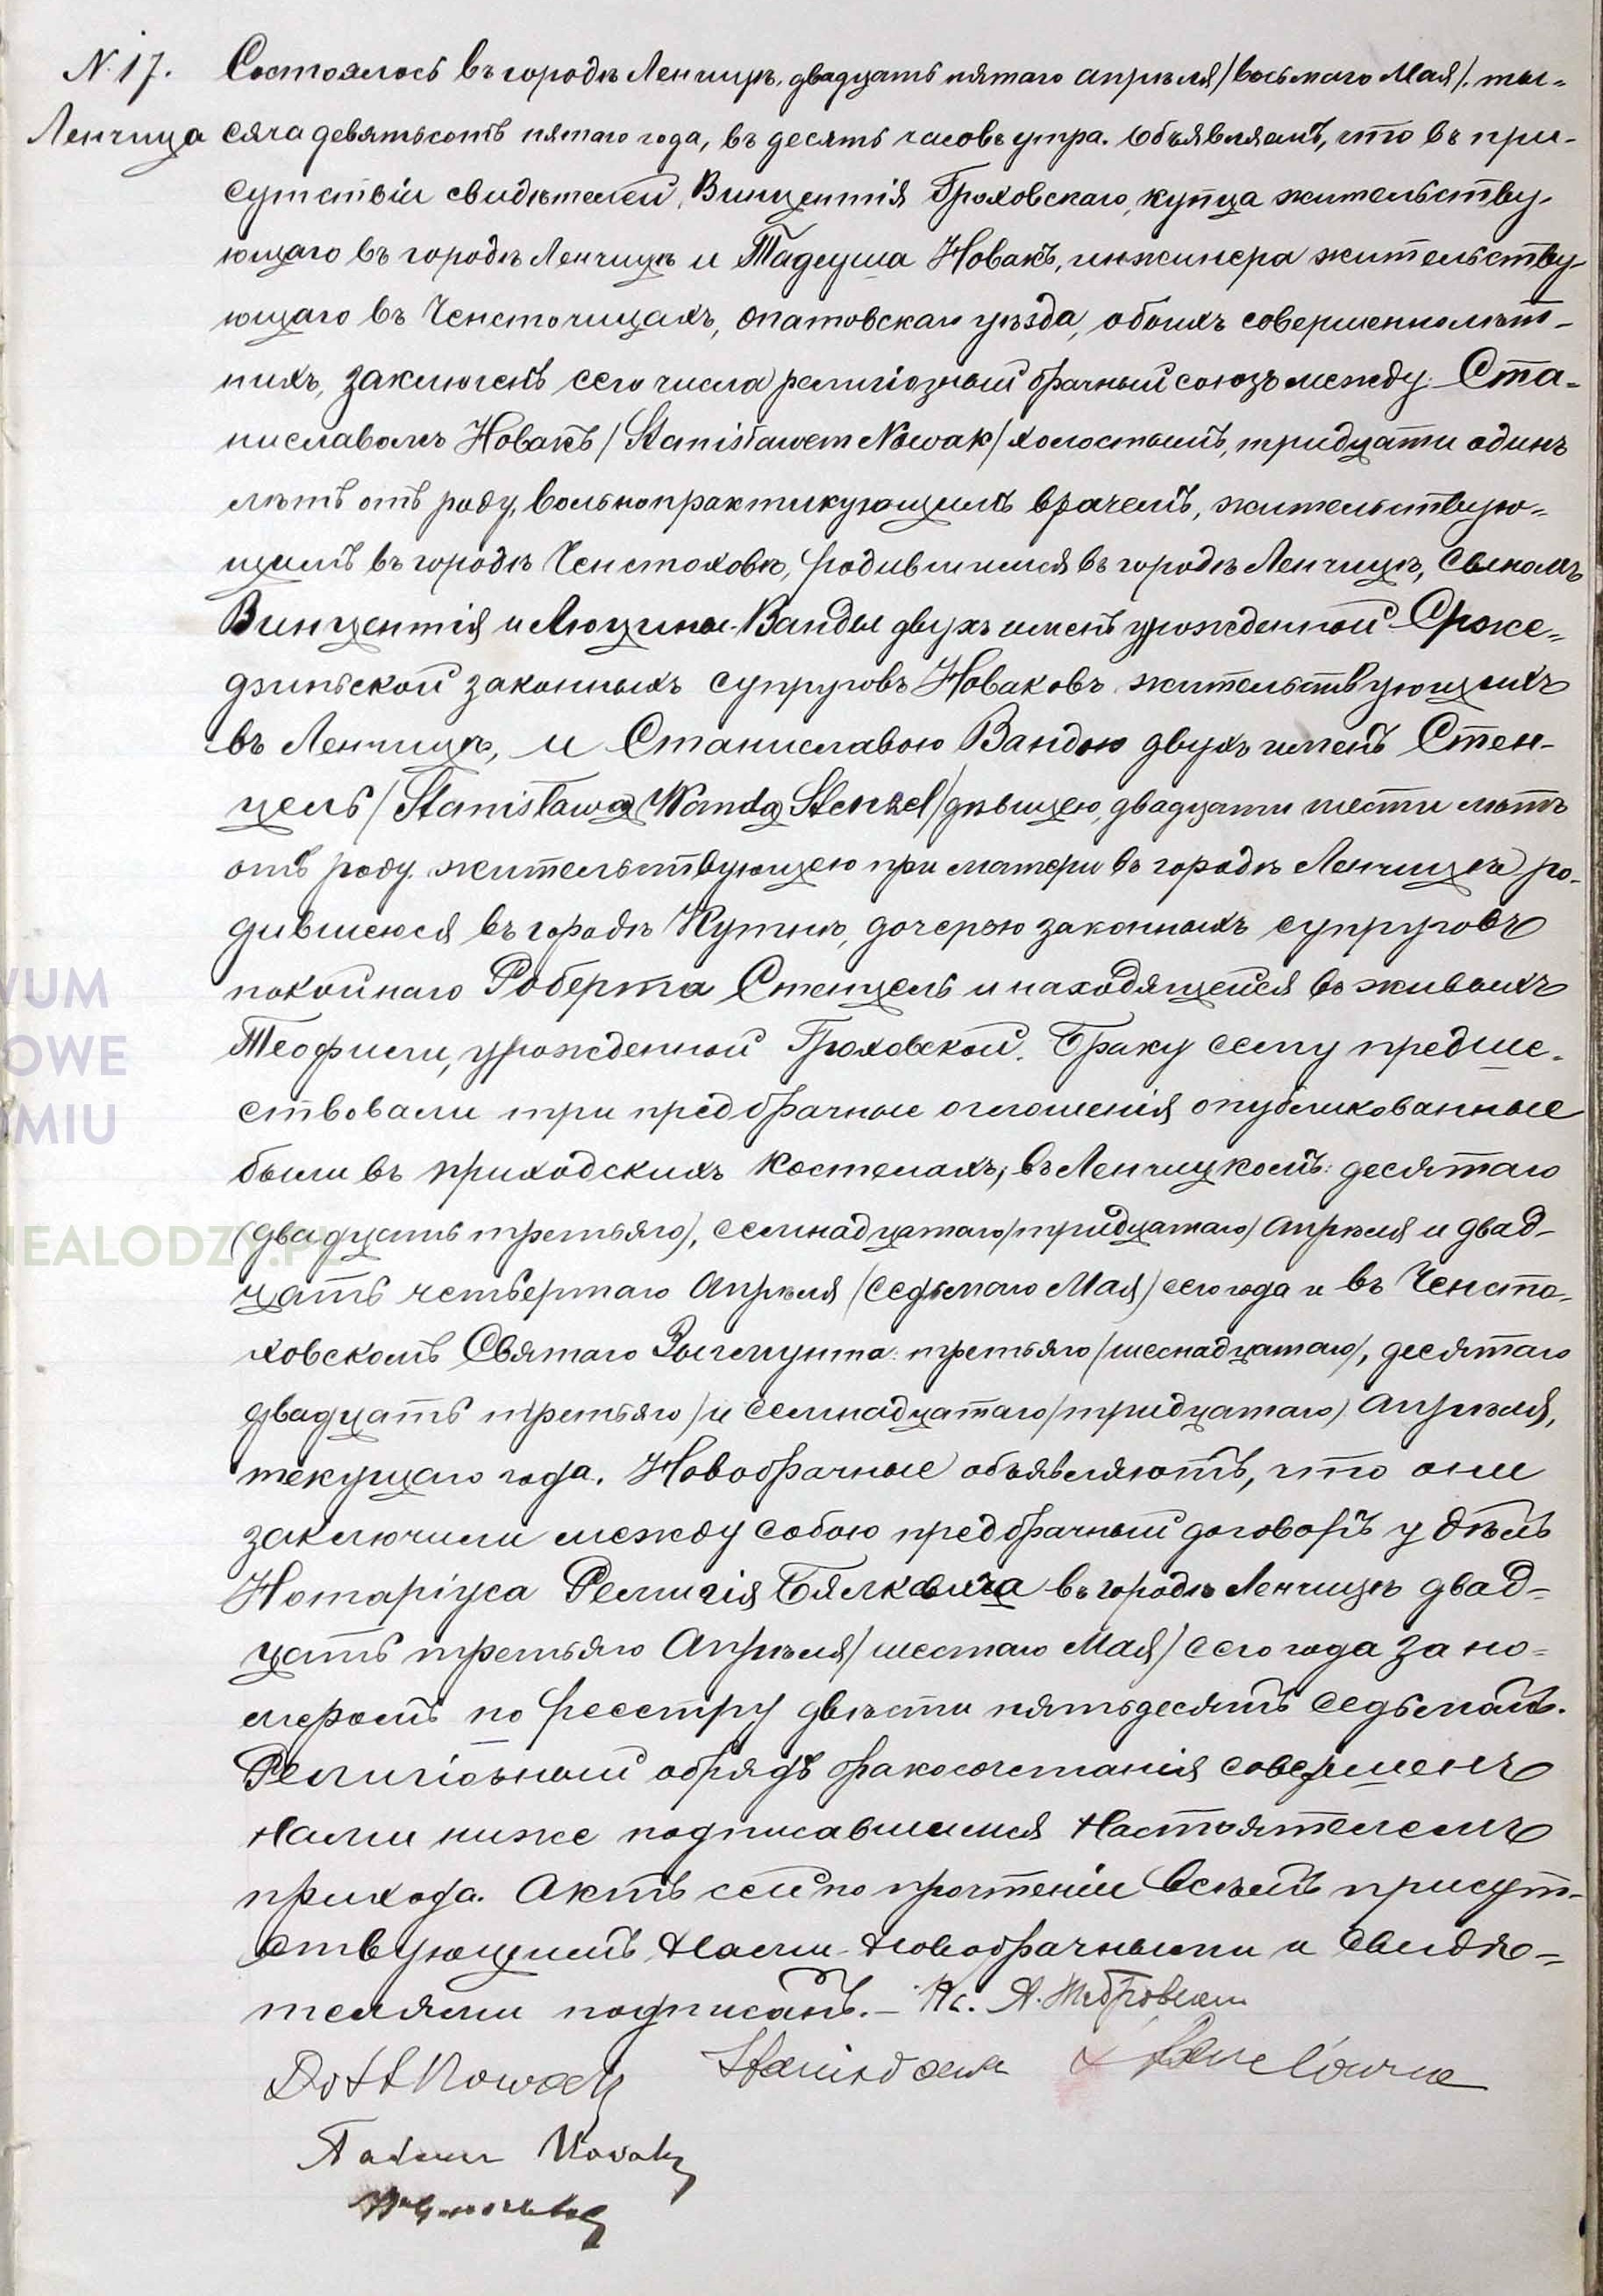 N. 17. Состоялось въ городѣ Ленчицѣ, двадцать пятаго апрѣля /восьмаго Мая/. ты-
Ленчица сяча девятьсотъ пятаго года, въ десять часовъ утра. Объявляемъ, что въ при-
сутствіи свидѣтелей, Винцентія Гроховскаго, купца жительству-
ющаго въ городѣ Ленчицѣ и Тадеуша Новакъ, инжинера жительству-
ющаго въ Ченсточицахъ, Опатовскаго уѣзда, обоихъ совершеннолѣт-
нихъ, заключенъ сего числа религіозный брачный союзъ между: Ста-
ниславомъ Новакъ /Stanisławem Nowak/ холостымъ, тридцати одинъ
лѣтъ отъ роду, вольнопрактикующимъ врачемъ, жительствую-
щимъ въ городѣ Ченстоховѣ, родившимся въ городѣ Ленчицѣ, сыномъ
Винцентія и Люцины-Ванды двухъ именъ урожденной Сроже-
дзинской законныхъ супруговъ Новаковъ жительствующихъ
въ Ленчицѣ, и Станиславою Вандою двухъ именъ Стен-
цель /Stanisławą Wandą Stenzel/ дѣвицею, двадцати шести лѣтъ
отъ роду жительствующею при матери въ городѣ Ленчицѣ ро-
дившеюся въ городѣ Кутнѣ, дочерью законныхъ супруговъ
покойнаго Роберта Стенцель и находящейся въ живыхъ
Теофили, урожденной Гроховской. Браку сему предше-
ствовали три предбрачные оглошенія опубликованные
были въ приходскихъ костелахъ, въ Ленчицкомъ: десятаго
(двадцать третьяго), семнадцатаго /тридцатаго/ Апрѣля и двад-
цать четвертаго Апрѣля /седьмаго Мая/ сего года и въ Ченсто-
ховскомъ Святаго Зыгмунта: третьяго /шеснадцатаго/, десятаго
двадцать третьяго/ и семнадцатаго /тридцатаго/ Апрѣля,
текущаго года. Новобрачные объявляютъ, что они
заключили между собою предбрачный договоръ у дѣлъ
Нотаріуса Ремигія Бялковича въ городѣ Ленчицѣ двад-
цать третьяго Апрѣля /шестаго Мая/ сего года за но-
меромъ по реестру двѣсти пятьдесятъ седьмымъ.
Религіозный обрядъ бракосочетанія совершенъ
Нами ниже подписавшимся Настоятелемъ
прихода. Актъ сей по прочтеніи всѣмъ присут-
ствующимъ Нами Новобрачными и Свидѣ-
телями подписанъ.– Кс. А.
Dr St Nowak Stanisława
Tadeusz Nowak